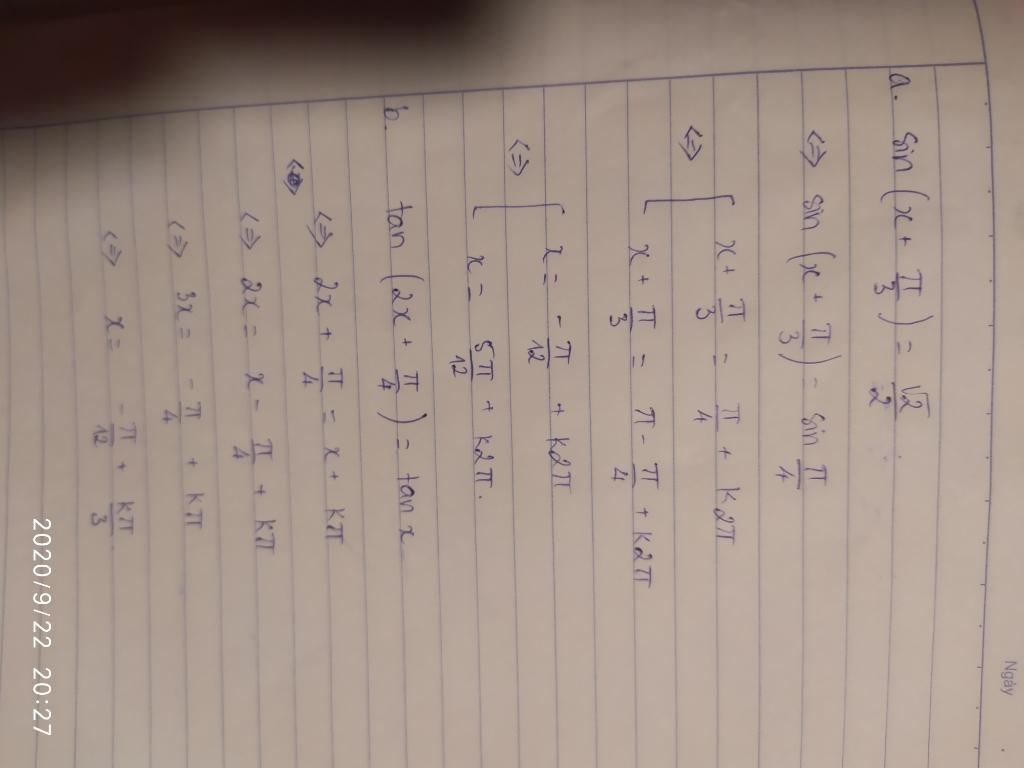 Ngày
a. sin (x + π/3) = √2/2
<=> sin (x + π/3) = sin π/4
<=> [ x + π/3 = π/4 + k2π
x + π/3 = π - π/4 + k2π
<=> [ x = -π/12 + k2π
x = 5π/12 + k2π.
b. tan (2x + π/4) = tan x
<=> 2x + π/4 = x + kπ
<=> 2x = x - π/4 + kπ
<=> 3x = -π/4 + kπ
<=> x = -π/12 + kπ/3
2020/9/22 20:27